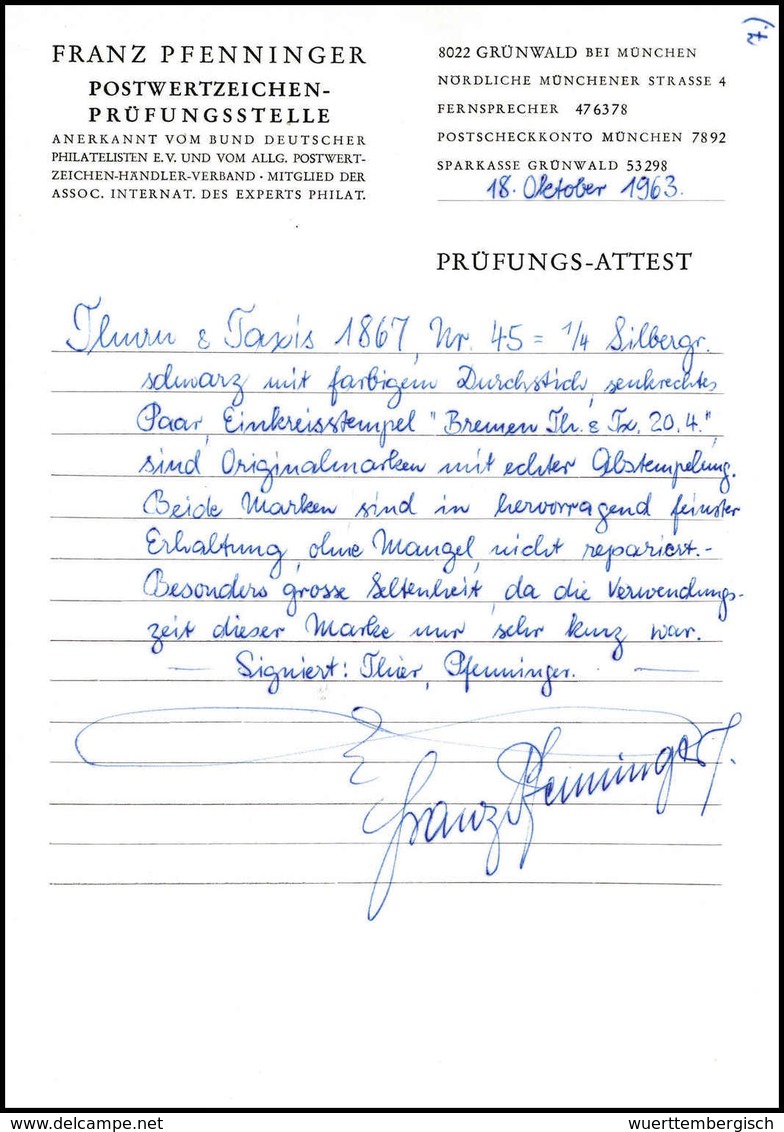 FRANZ PFENNINGER
POSTWERTZEICHEN-
PRÜFUNGSSTELLE
ANERKANNT VOM BUND DEUTSCHER
PHILATELISTEN E.V. UND VOM ALLG. POSTWERT-
ZEICHEN-HÄNDLER-VERBAND · MITGLIED DER
ASSOC. INTERNAT. DES EXPERTS PHILAT.
7.)
8022 GRÜNWALD BEI MÜNCHEN
NÖRDLICHE MÜNCHENER STRASSE 4
FERNSPRECHER 476378
POSTSCHECKKONTO MÜNCHEN 7892
SPARKASSE GRÜNWALD 53298
18. Oktober 1963.
PRÜFUNGS-ATTEST
Thurn & Taxis 1867, Nr. 45 = 1/4 Silbergr.
schwarz mit farbigem Durchstich, senkrechtes
Paar, Einkreisstempel "Bremen Th. & Tx. 20.4.",
sind Originalmarken mit echter Abstempelung.
Beide Marken sind in hervorragend feinster
Erhaltung, ohne Mängel, nicht repariert.-
Besonders grosse Seltenheit, da die Verwendungs-
zeit dieser Marke nur sehr kurz war.
— Signiert: Thier, Pfenninger. —
Franz Pfenninger
www.delcampe.net
wuerttembergisch